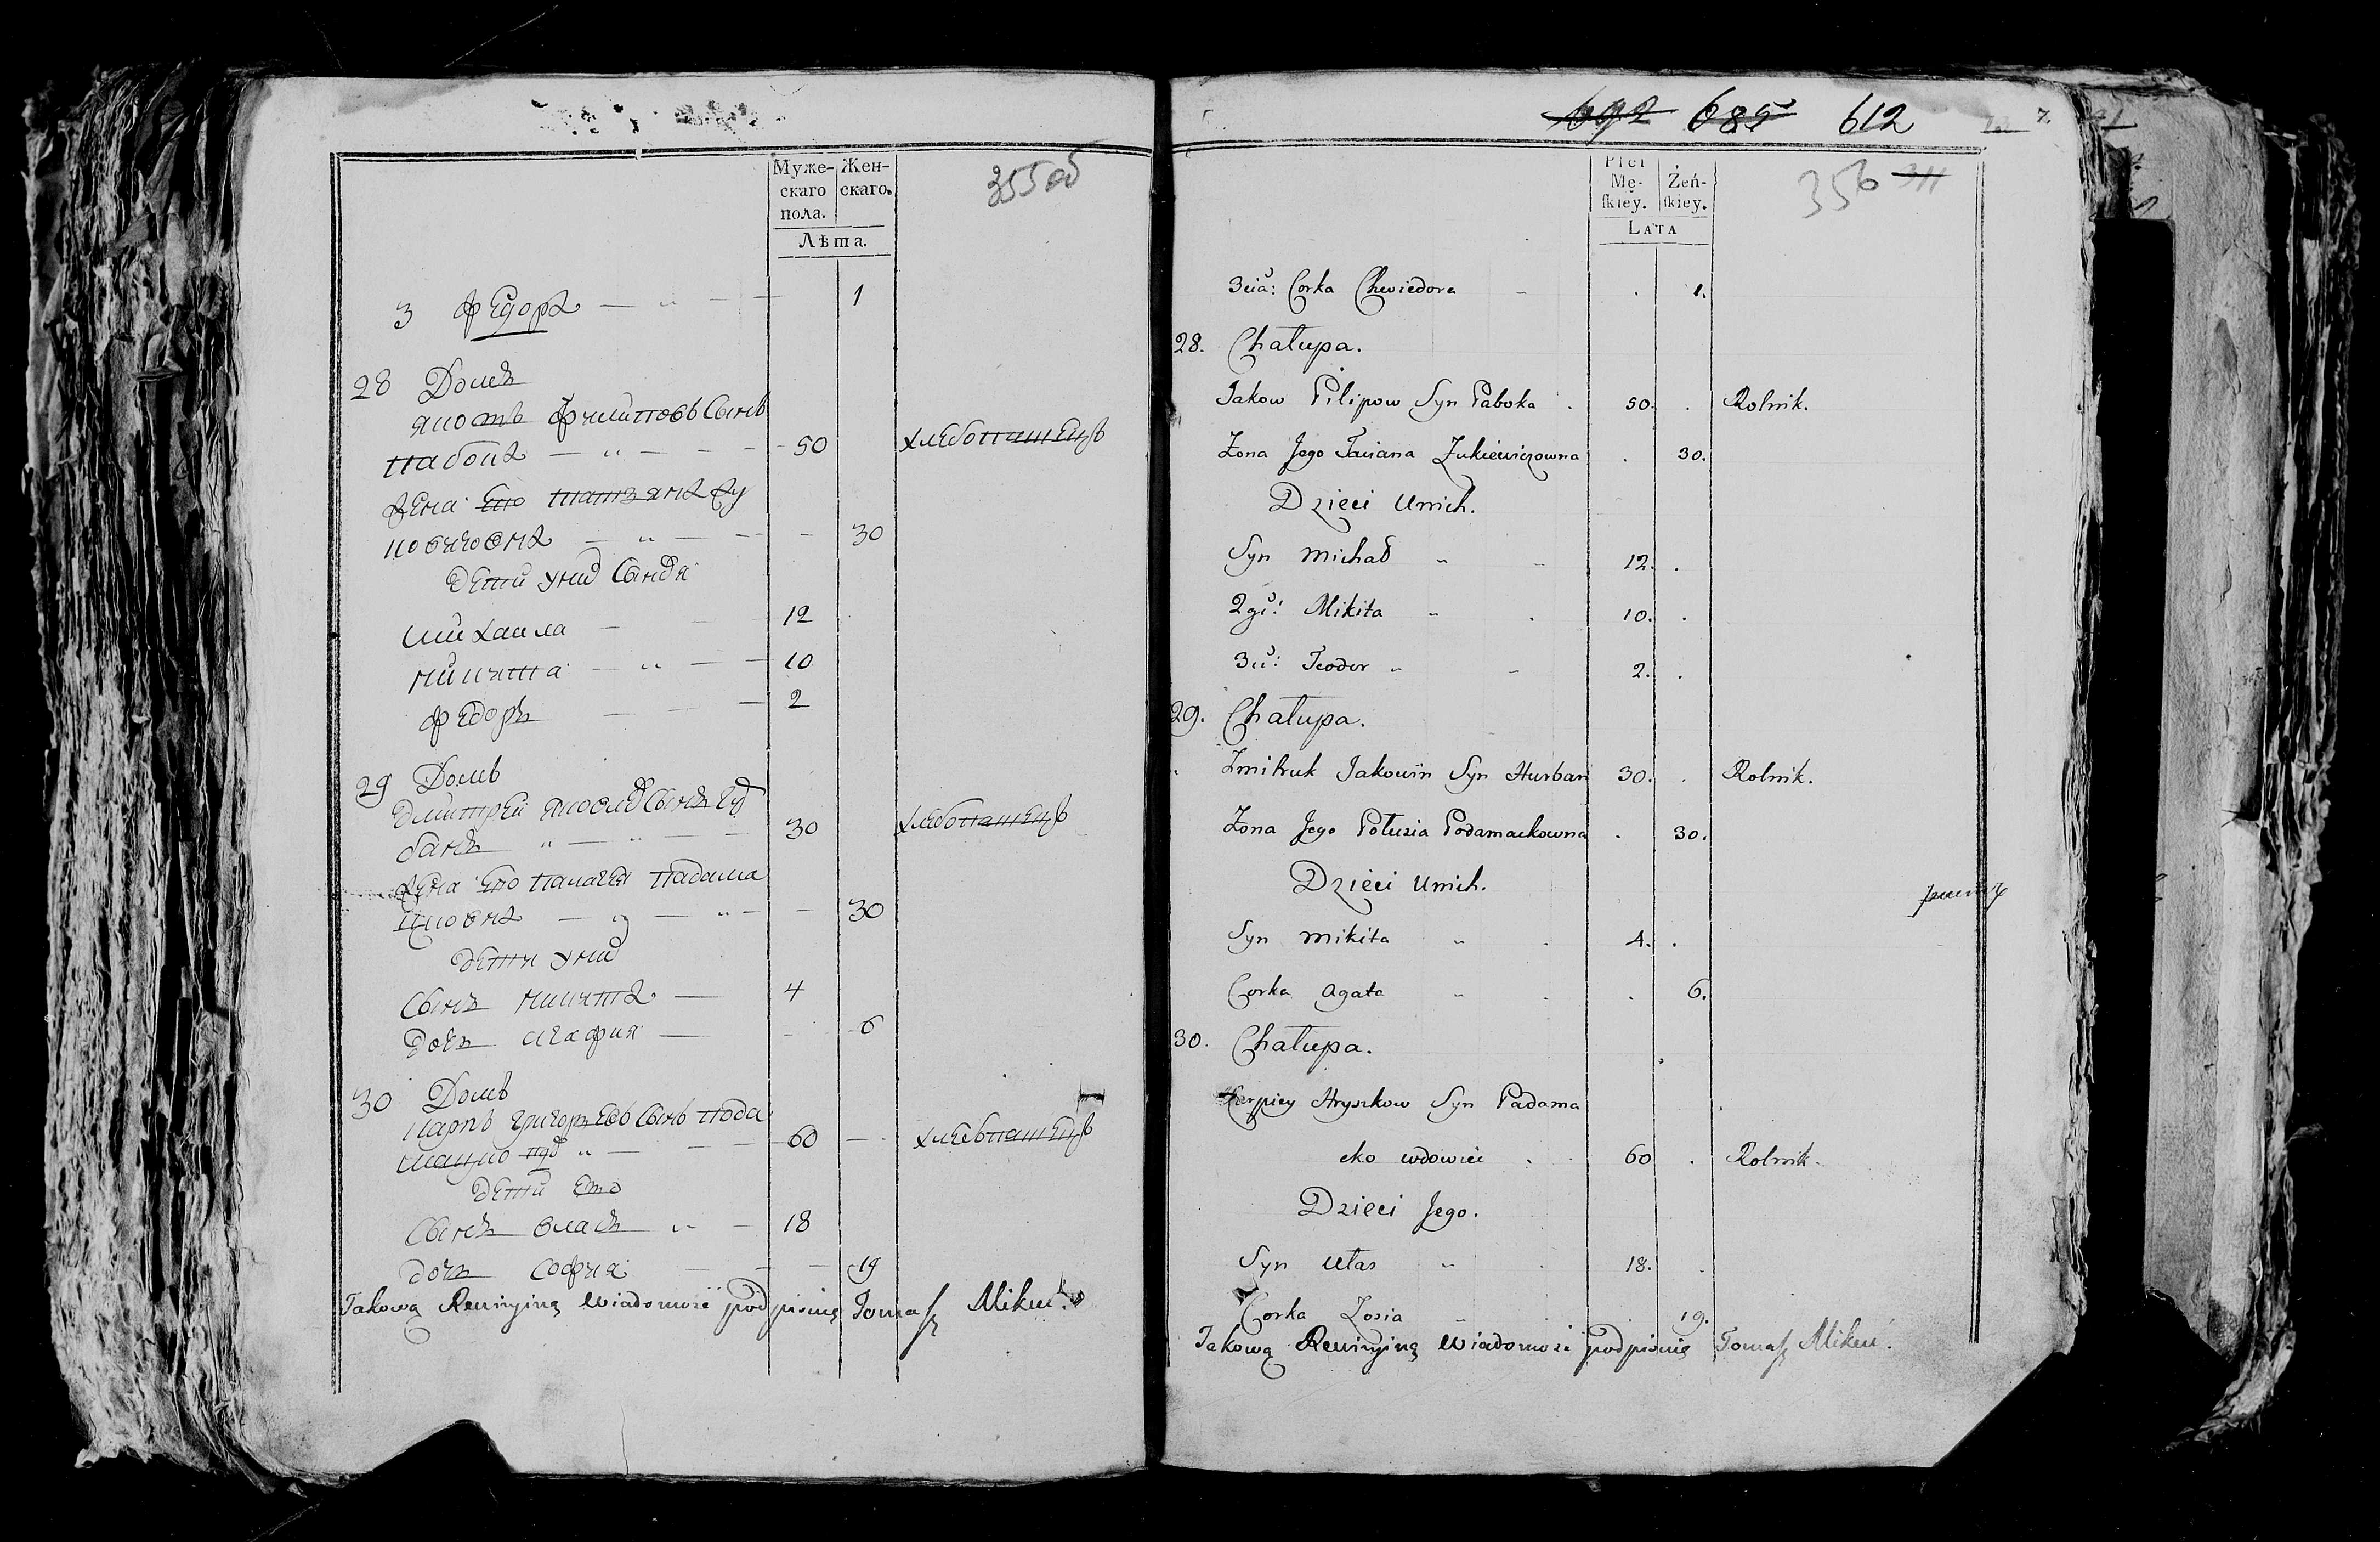 Муже-
скаго
пола.
Жен-
скаго.
Лѣта.
355 об
3 Федора — „ — — 1
28 Домъ
Яковъ Филиповъ Сынъ
Пабока — „ — — 50 хлебопашецъ
Жена Его Татьяна Жу
ковичовна — „ — — 30
Дети У них Сыновья
Михаила — 12
Микита — „ — — 10
Федоръ — — — 2
29 Домъ
Дмитрей Яковлев Сынъ Гур
банъ „ — „ — 30 хлебопашецъ
Жена Его Палагея Падама
цковна — „ — „ — 30
Дети У них
Сынъ Микита — 4
Дочь Агафия — 6
30 Домъ
Карпъ Григорьевъ Сынъ Пода
мацко „ — 60 — хлебопашецъ
Дети Его
Сынъ Власъ „ — 18
Дочь София — — 19
Takową Rewizyiną Wiadomość podpisuię Tomasz Mikuć.
692 685 612
Płci
Mę-
ſkiey.
Żeń-
ſkiey.
Lata
356 311
3cia: Corka Chwiedora 1.
28. Chałupa.
Jakow Pilipow Syn Paboka 50. Rolnik.
Zona Jego Taciana Zukiewiczowna 30.
Dzieci Unich.
Syn Michał 12.
2gi: Mikita 10.
3ci: Teodor 2.
29. Chałupa.
Zmitruk Jakowin Syn Hurban 30. Rolnik.
Zona Jego Połusia Podamackowna 30.
Dzieci Unich.
Syn Mikita 4.
Corka Agata 6.
30. Chałupa.
Karpiey Hryszkow Syn Padama
cko wdowiec 60 Rolnik.
Dzieci Jego.
Syn Ułas 18.
Corka Zosia 19.
Takową Rewizyiną Wiadomość podpisuię Tomasz Mikuć.